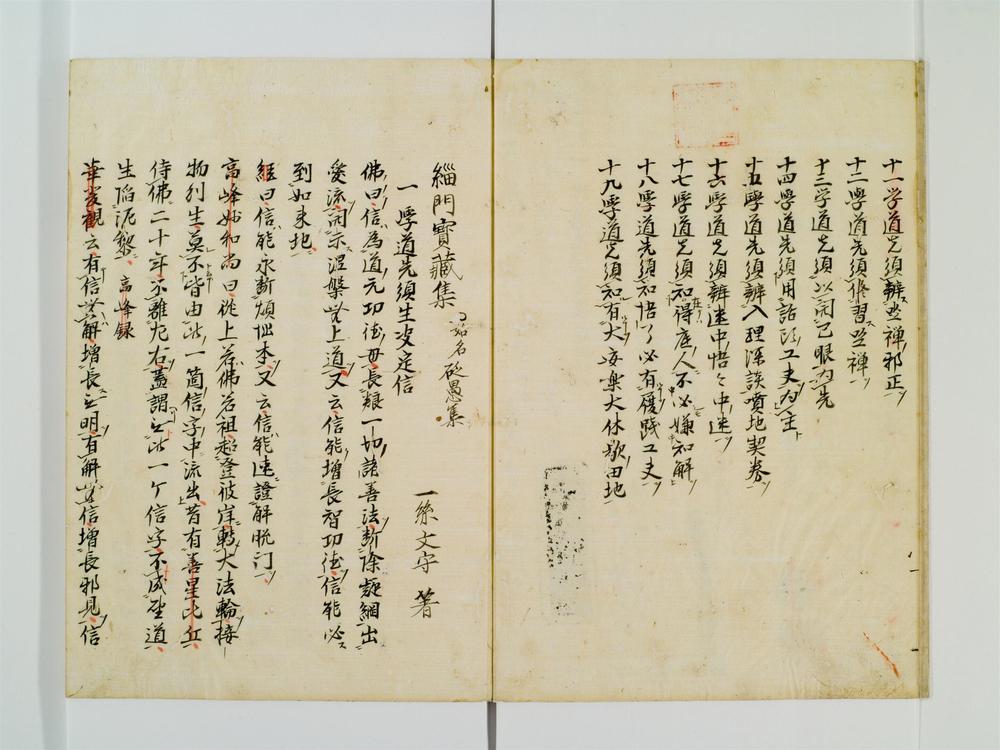 十一学道先須辨坐禅邪正
十二學道先須修習坐禅
十三学道先須以開己眼为先
十四學道先須用話頭工夫为主
十五學道先須辨入理深談噴地契券
十六學道先須辨迷中悟々中迷
十七學道先須知得底人不必嫌知解
十八學道先須知悟了必有履践工夫
十九學道先須知有大安楽大休歇田地
緇門寶藏集
一名砭愚集
一絲文守 著
一 學道先須生决定信
佛曰信為道元功徳母長養一切諸善法断除疑網出
愛流開示涅槃無上道又云信能增長智功徳信能必
到如来地
經曰信能永断煩惱本又云信能速證解脱门
高峰妙和尚曰從上若佛若祖超登彼岸轉大法輪接
物利生莫不皆由此一箇信字中流出昔有善星比丘
侍佛二十年不離左右蓋謂無此一ケ信字不成聖道
生陷泥犂 高峰録
華嚴觀云有信無解增長無明有解無信增長邪見信